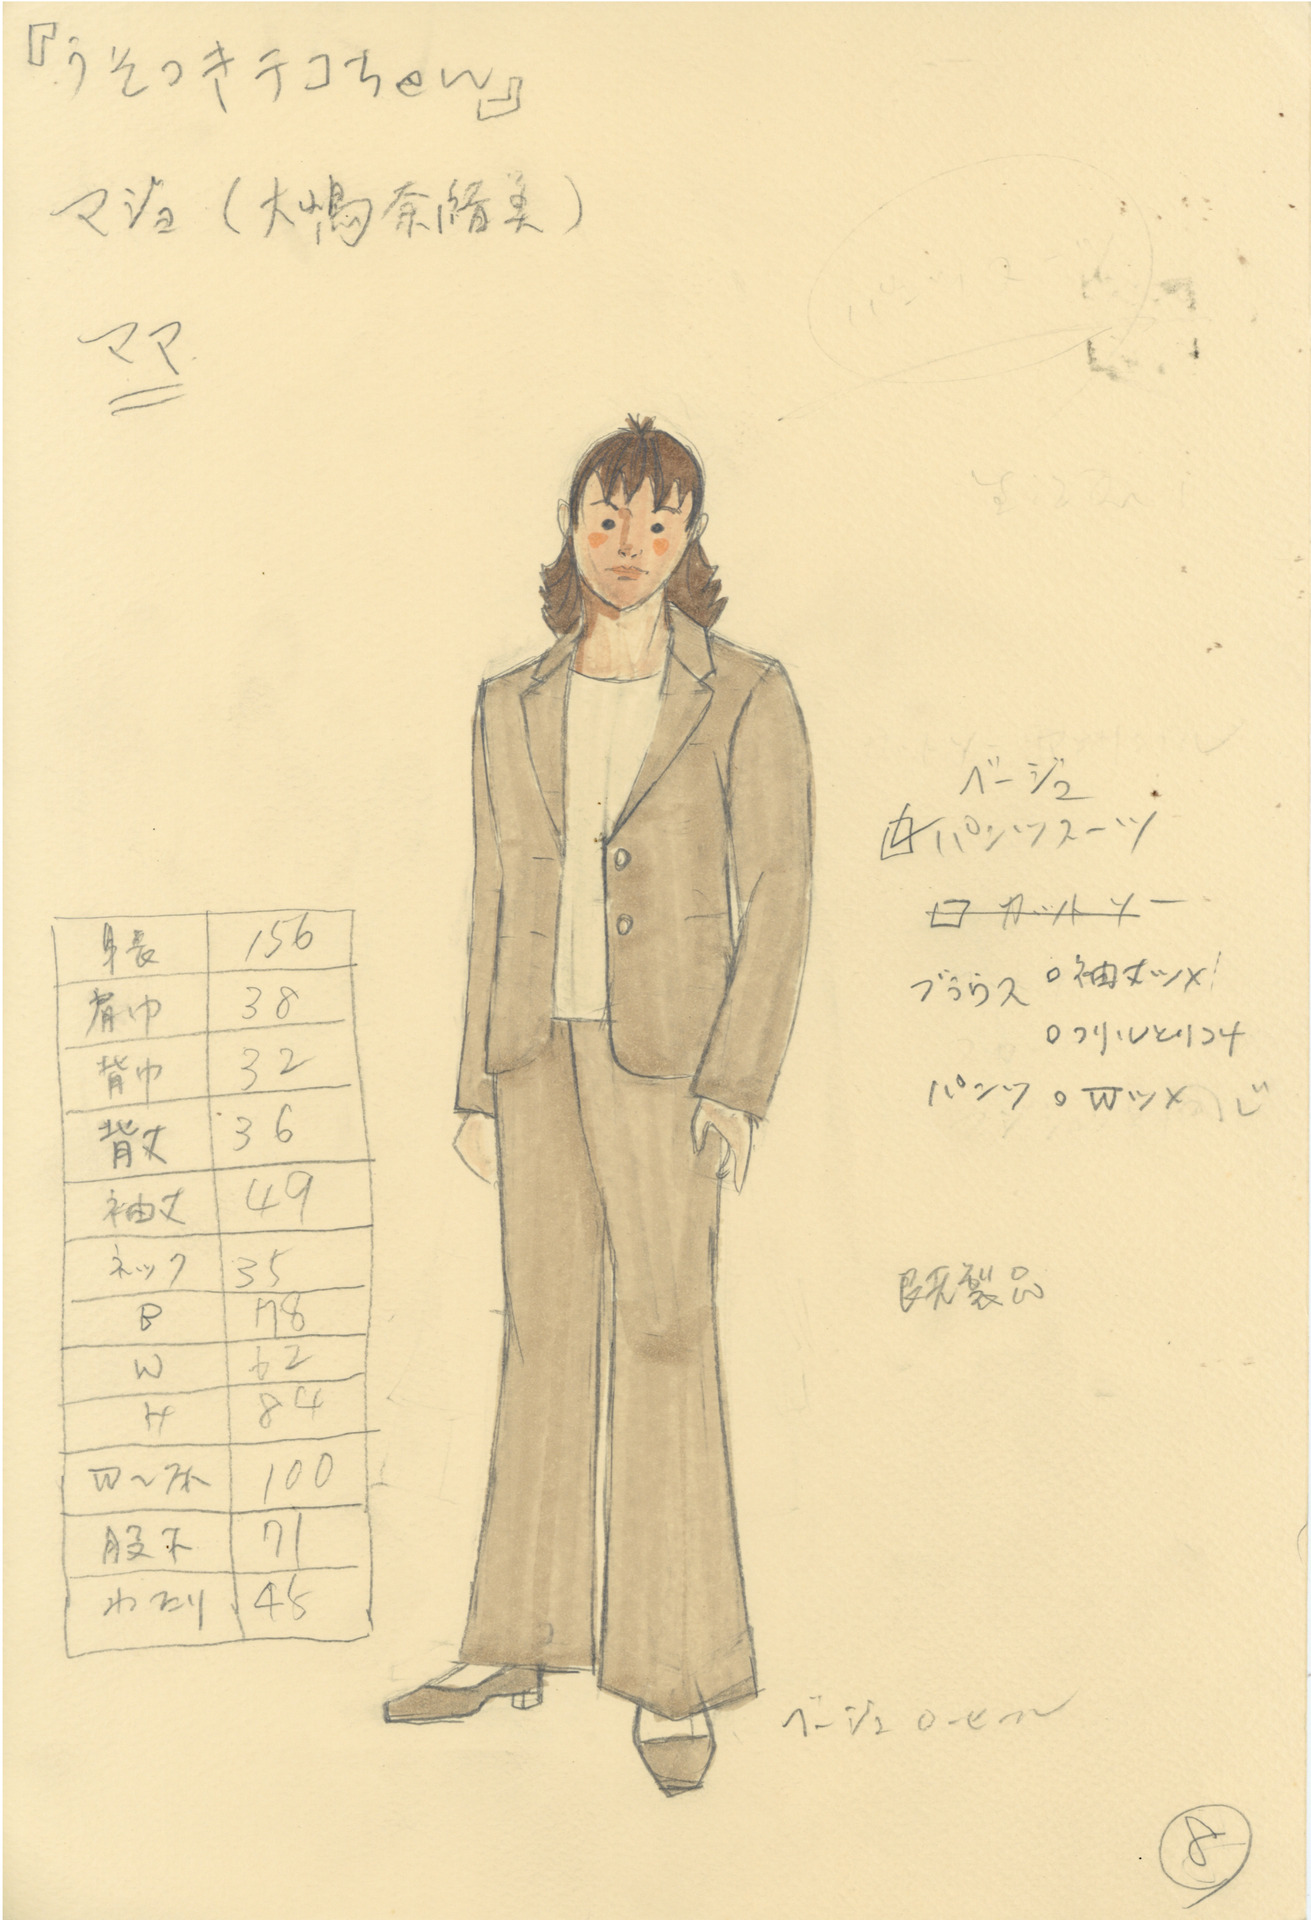 『うそつきテコちゃん』
マジョ（大嶋奈緒美）
ママ
パンツスーツ
ベージュ
パンツスーツ
カットソー
ブラウス ○袖丈ツメ!
○フリルとりつけ
パンツ ○Wツメ
既製品
身長 156
肩巾 38
背巾 32
背丈 36
袖丈 49
ネック 35
B 78
W 62
H 84
W〜床 100
股下 71
わたり 45
ベージュ ローヒール
8